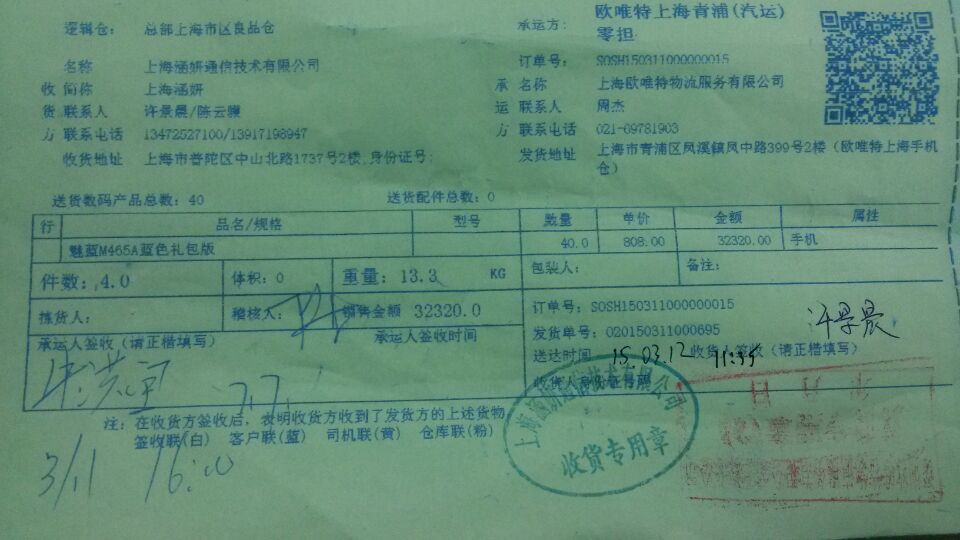 逻辑仓: 总部上海市区良品仓 承运方: 欧唯特上海青浦(汽运)零担
名称 上海涵妍通信技术有限公司 订单号: SOSH150311000000015
收 简称 上海涵妍 承 名称 上海欧唯特物流服务有限公司
货 联系人 许景晨/陈云骥 运 联系人 周杰
方 联系电话 13472527100/13917198947 方 联系电话 021-69781903
收货地址 上海市普陀区中山北路1737号2楼,身份证号: 发货地址 上海市青浦区凤溪镇凤中路399号2楼(欧唯特上海手机仓)
送货数码产品总数: 40 送货配件总数: 0
行 品名/规格 型号 数量 单价 金额 属性
魅蓝M465A蓝色礼包版 40.0 808.00 32320.00 手机
件数: 4.0 体积: 0 重量: 13.3 KG 包装人: 备注:
拣货人: 稽核人: 销售金额 32320.0 订单号: SOSH150311000000015
发货单号: 020150311000695 许景晨
承运人签收(请正楷填写) 承运人签收时间 送达时间 15.03.12 11:35 收货人签收(请正楷填写)
收货人身份证号牌
注: 在收货方签收后,表明收货方收到了发货方的上述货物
签收联(白) 客户联(蓝) 司机联(黄) 仓库联(粉)
3/11 16:00
上海涵妍通信技术有限公司
收货专用章